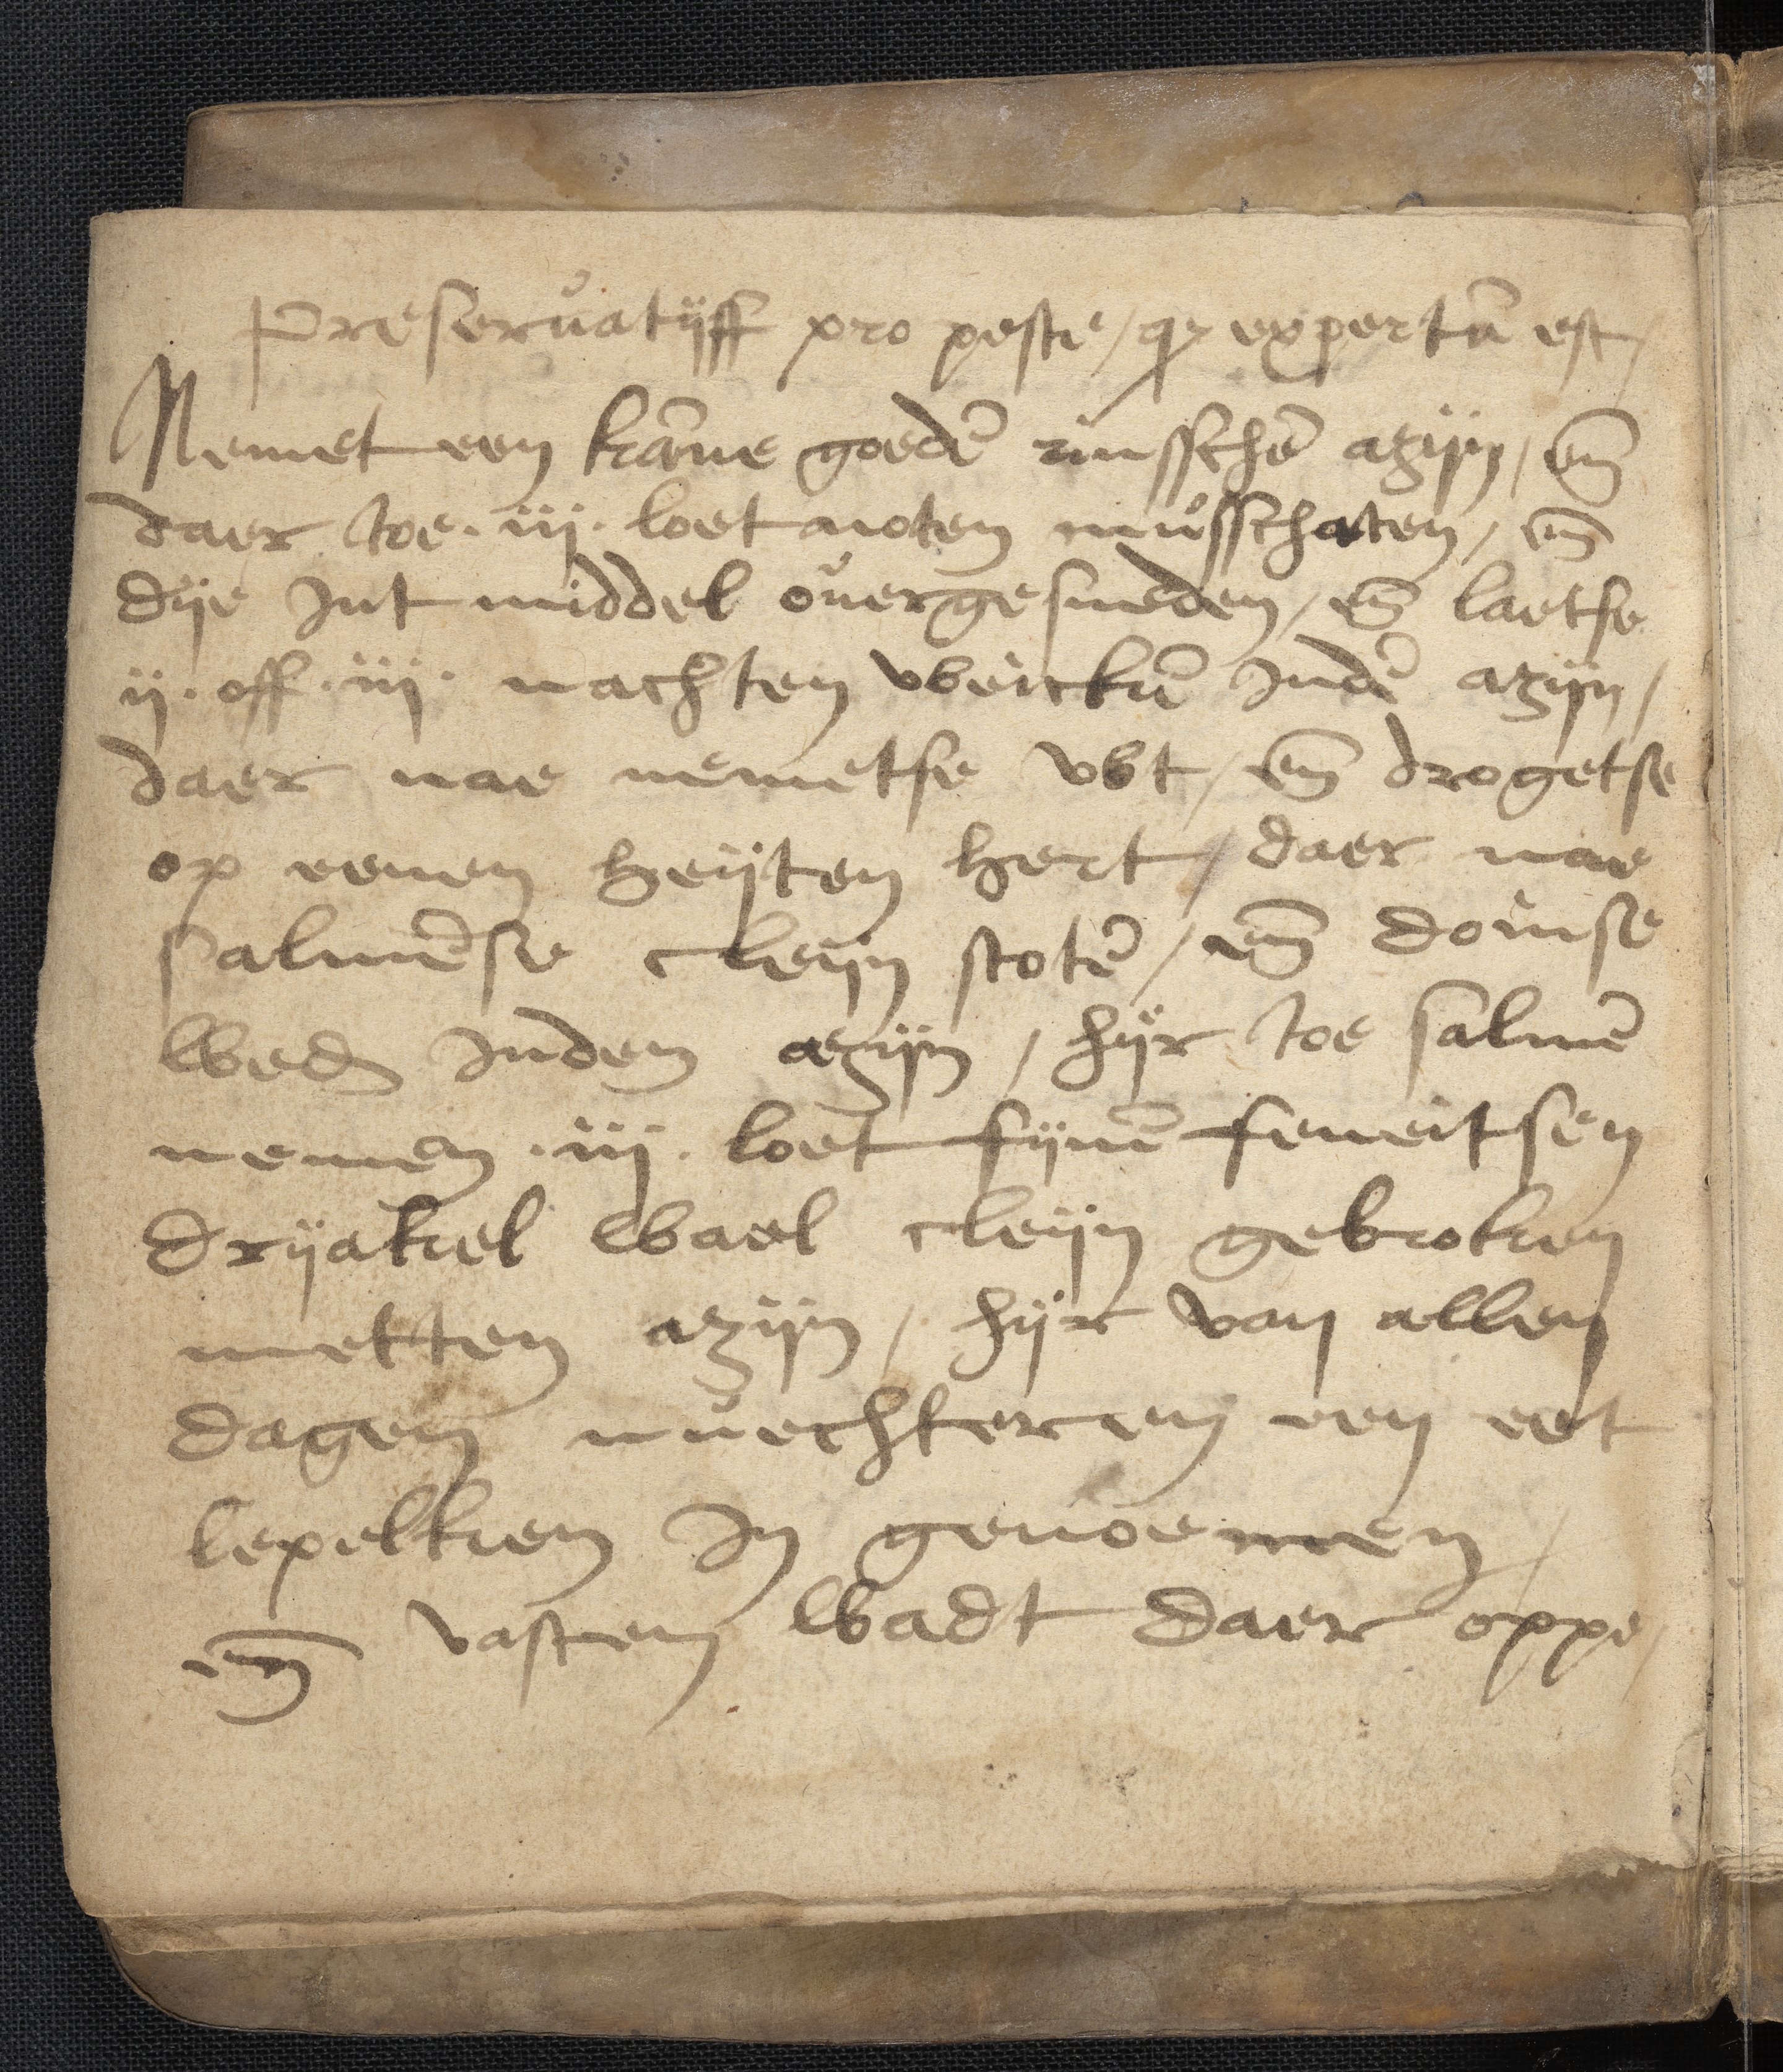 Preseruatijff pro peste / qꝫ expertū est /
Nemet een kāne goedē rinsschē azijn / en̄
daer toe · iij · loet noten mŭsschaten / en̄
dije Int middel ouergesneden / en̄ laetse
ij · off · iij · nachten weickē Indē azijn /
daer nae nemetse wt / en̄ drogetse
op eenen heijten hert / daer nae
salmēse cleijn stotē / en̄ doinse
wed Inden azijn / hijr toe salmē
nemen · iij · loet fijnē feneitsen
drijakel wael cleijn gebroken
metten azijn / hijr van allen
dagen nuechteren een eet
lepelken In genoemen /
en̄ vasten wadt daer oppe /